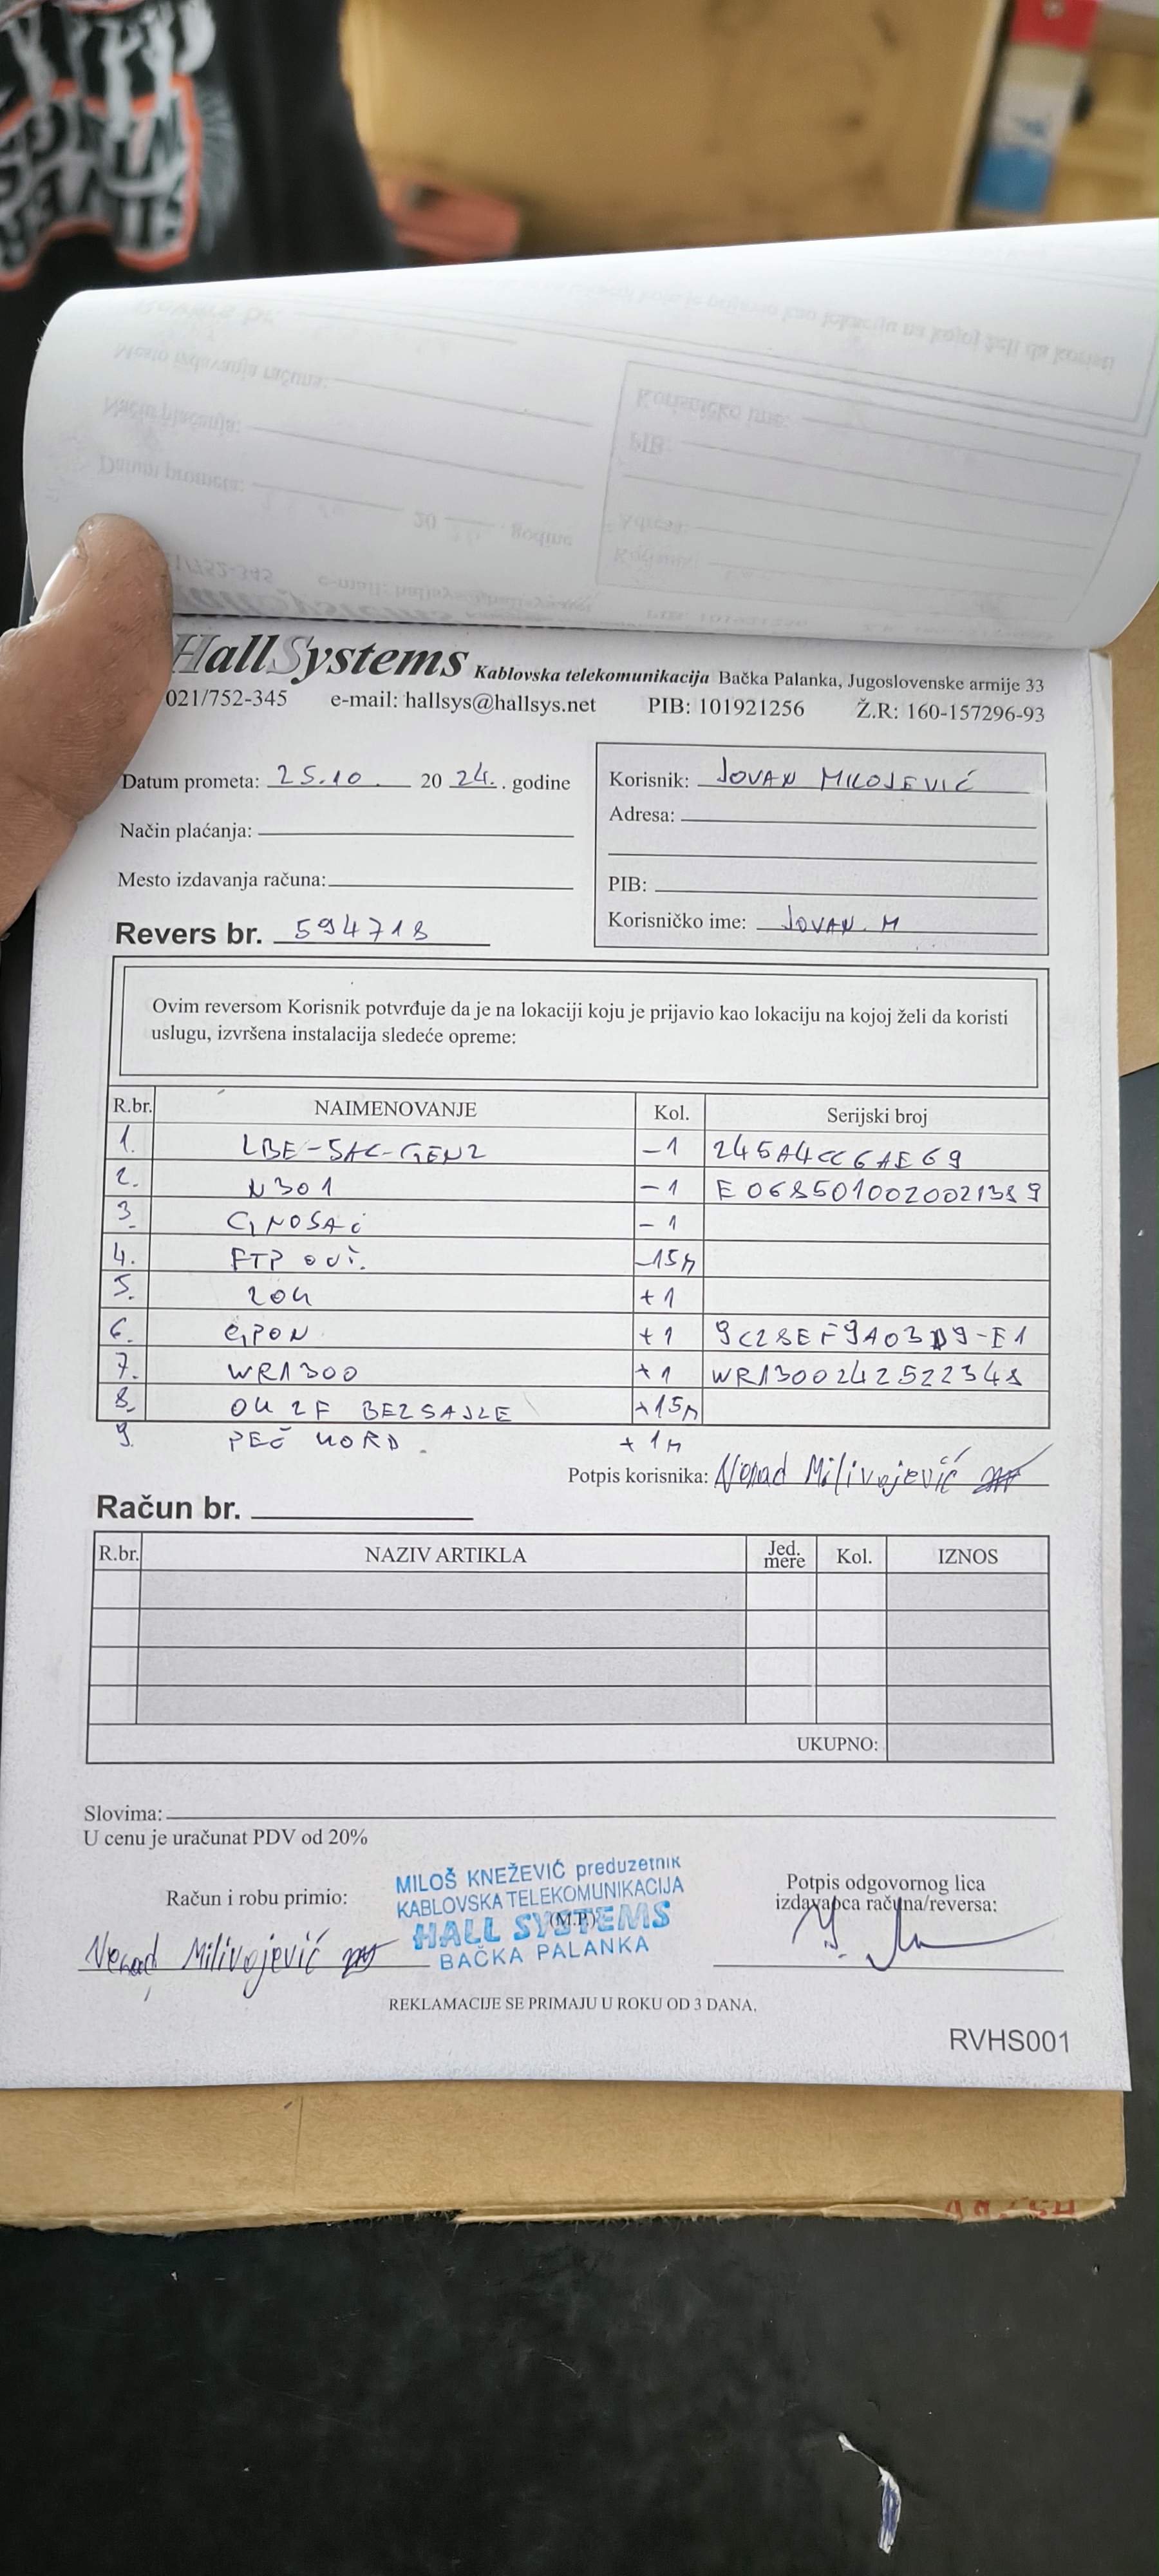 HallSystems Kablovska telekomunikacija Bačka Palanka, Jugoslovenske armije 33
021/752-345 e-mail: hallsys@hallsys.net PIB: 101921256 Ž.R: 160-157296-93
Datum prometa: 25.10. 20 24. . godine
Način plaćanja:
Mesto izdavanja računa:
Revers br. 594718
Korisnik: JOVAN MILOJEVIĆ
Adresa:
PIB:
Korisničko ime: JOVAN. M
Ovim reversom Korisnik potvrđuje da je na lokaciji koju je prijavio kao lokaciju na kojoj želi da koristi
uslugu, izvršena instalacija sledeće opreme:
R.br. NAIMENOVANJE Kol. Serijski broj
1. LBE-5AC-GEN2 -1 245A4CC6AE69
2. N301 -1 E0685010020021389
3. G NOSAČ -1
4. FTP -15m
5. ZOK +1
6. GPON +1 9C28EF9A03D9-E1
7. WR1300 +1 WR1300242522348
8. OK 2F BEZ SAJLE +15m
9. PEČ KORD. +1m
Potpis korisnika: Nenad Milivojević
Račun br.
R.br. NAZIV ARTIKLA Jed. mere Kol. IZNOS
UKUPNO:
Slovima:
U cenu je uračunat PDV od 20%
Račun i robu primio:
Nenad Milivojević
MILOŠ KNEŽEVIĆ preduzetnik
KABLOVSKA TELEKOMUNIKACIJA
HALL SYSTEMS
(M.P.)
BAČKA PALANKA
Potpis odgovornog lica
izdavaoca računa/reversa:
REKLAMACIJE SE PRIMAJU U ROKU OD 3 DANA.
RVHS001